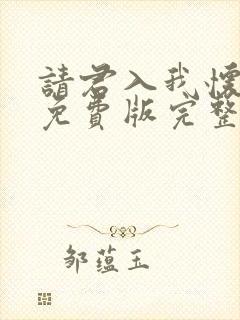 請君入我懷
免費版完整
邹蕴玉